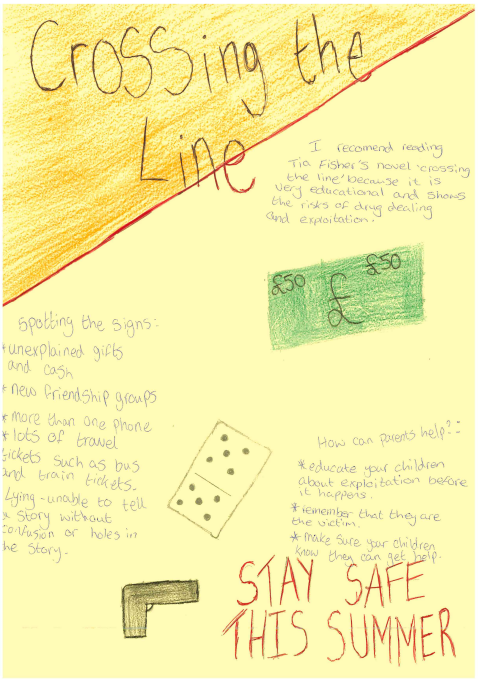 Crossing the
Line
I recomend reading
Tia Fisher's novel 'crossing
the line' because it is
very educational and shows
the risks of drug dealing
and exploitation.
£50
£50
£
Spotting the signs:
* unexplained gifts
and cash
* new friendship groups
* more than one phone
* lots of travel
tickets such as bus
and train tickets.
Lying-unable to tell
a story without
confusion or holes in
the story.
How can parents help?:
* educate your children
about exploitation before
it happens.
* remember that they are
the victim.
* make sure your children
know they can get help.
STAY SAFE
THIS SUMMER